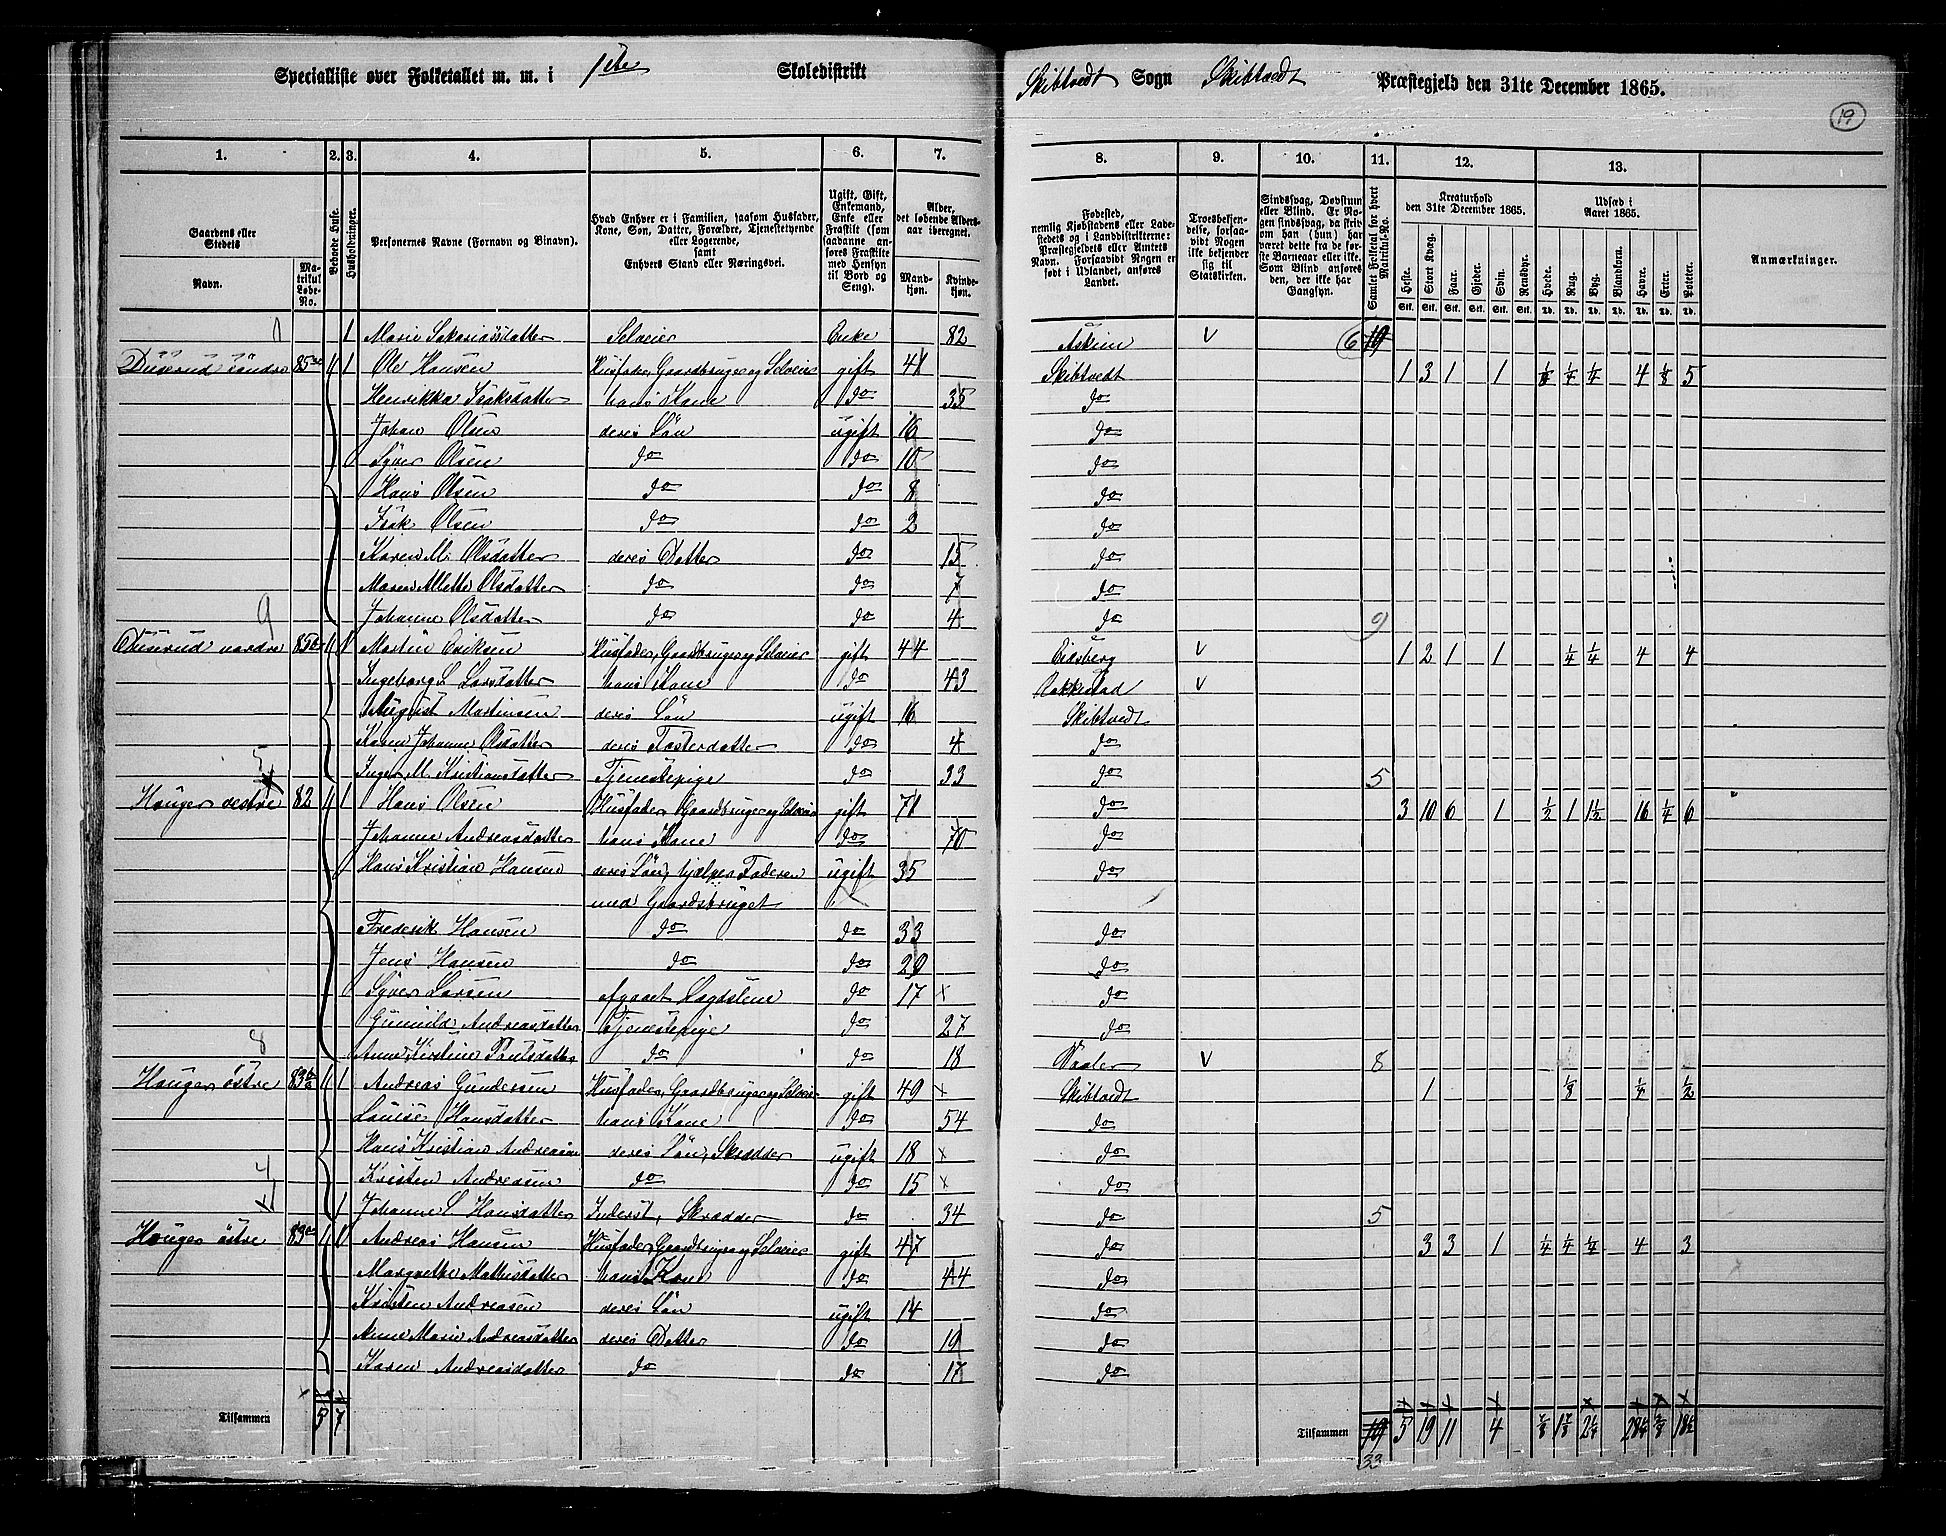 Specialliste over Folketallet m. m. i 1ste Skoledistrikt Skibtvedt Sogn Skibtvedt Præstegjeld den 31te December 1865.
19
1. 2. 3. 4. 5. 6. 7. 8. 9. 10. 11. 12. 13.
Gaardens eller Stedets Navn. Matrikul Løbe-No. Beboede Huse. Husholdninger. Personernes Navne (Fornavn og Binavn).
Hvad Enhver er i Familien, saasom Husfader, Kone, Søn, Datter, Forældre, Tjenestetyende eller Logerende, samt Enhvers Stand eller Næringsvei.
Ugift, Gift, Enkemand, Enke eller Fraskilt (som saadanne anføres Fraskilte med Hensyn til Bord og Seng).
Alder, det løbende Aldersaar iberegnet. Mandkjøn. Kvindekjøn.
Fødested, nemlig Kjøbstadens eller Ladestedets og i Landdistrikterne: Præstegjeldets eller Amtets Navn. Forsaavidt Nogen er født i Udlandet, anføres Landet.
Troesbekjendelse, forsaavidt Nogen ikke bekjender sig til Statskirken.
Sindssvag, Døvstum eller Blind. Er Nogen sindssvag, da skrives om han (hun) har været dette fra de første Barneaar eller ikke. Som Blind anføres den, der ikke har Gangsyn.
Samlet Folketal for hvert Matrikul-No.
Kreaturhold den 31te December 1865. Heste. Stort Kvæg. Faar. Gjeder. Svin. Rensdyr.
Udsæd i Aaret 1865. Hvede. Rug. Byg. Blandkorn. Havre. Erter. Poteter.
Anmærkninger.
1 1 Marie Sakariasdatter Selveier Enke 82 Askim V 6
søndre 85 1 1 Ole Hansen Husfader, Gaardbruger og Selveier gift 41 Skibtvedt 1 3 1 1 1/8 1/4 1/4 4 1/8 5
Henrikka Isaksdatter hans Kone do 35 do
Johan Olsen deres Søn ugift 16 do
Syver Olsen do do 10 do
Hans Olsen do do 8 do
Isak Olsen do do 2 do
Karen M. Olsdatter deres Datter do 15 do
Maren Alette Olsdatter do do 7 do
9 Johanne Olsdatter do do 4 do 9
nordre 85b 1 1 Martin Eriksen Husfader, Gaardbruger og Selveier gift 44 Eidsberg V 1 2 1 1 1/4 1/4 4 4
Ingeborg L. Larsdatter hans Kone do 43 Rakkestad V
August Martinsen deres Søn ugift 16 Skibtvedt
Karen Johanne Olsdatter deres Fosterdatter do 4 do
5 Inger M. Kristiansdatter Tjenestepige do 33 do 5
Houger vestre 82 1 1 Hans Olsen Husfader, Gaardbruger og Selveier gift 71 do 3 10 6 1 1/2 1 1 1/2 16 1/4 6
Johanne Andreasdatter hans Kone do 70 do
Hans Kristian Hansen deres Søn, hjælper Faderen ugift 35 do
med Gaardsbruget
Frederik Hansen do do 33 do
Jens Hansen do do 29 do
Syver Larsen afgaaet Lægdslem do 17 x do
Gunnild Andreasdatter Tjenestepige do 27 do
8 Anne Kirstine Poulsdatter do do 18 Vaaler V 8
Houger østre 83 1 1 Andreas Gundersen Husfader, Gaardbruger og Selveier gift 49 x Skibtvedt 1 1/8 1/2
Louise Hansdatter hans Kone do 54 do
Hans Kristian Andreasen deres Søn, Skrædder ugift 18 x do
4 Kristen Andreasen do do 15 x do
1 Johanne L. Hansdatter Inderst, Skrædder do 34 do 5
Houger østre 83 1 1 Andreas Hansen Husfader, Gaardbruger og Selveier gift 47 do 3 3 1 1/4 1/4 1/4 4 3
Margrethe Mathisdatter hans Kone do 44 do
Kristen Andreasen deres Søn ugift 14 do
Anne Marie Andreasdatter deres Datter do 19 do
Karen Andreasdatter do do 17 do
Tilsammen 5 7 Tilsammen 5 19 11 4
33